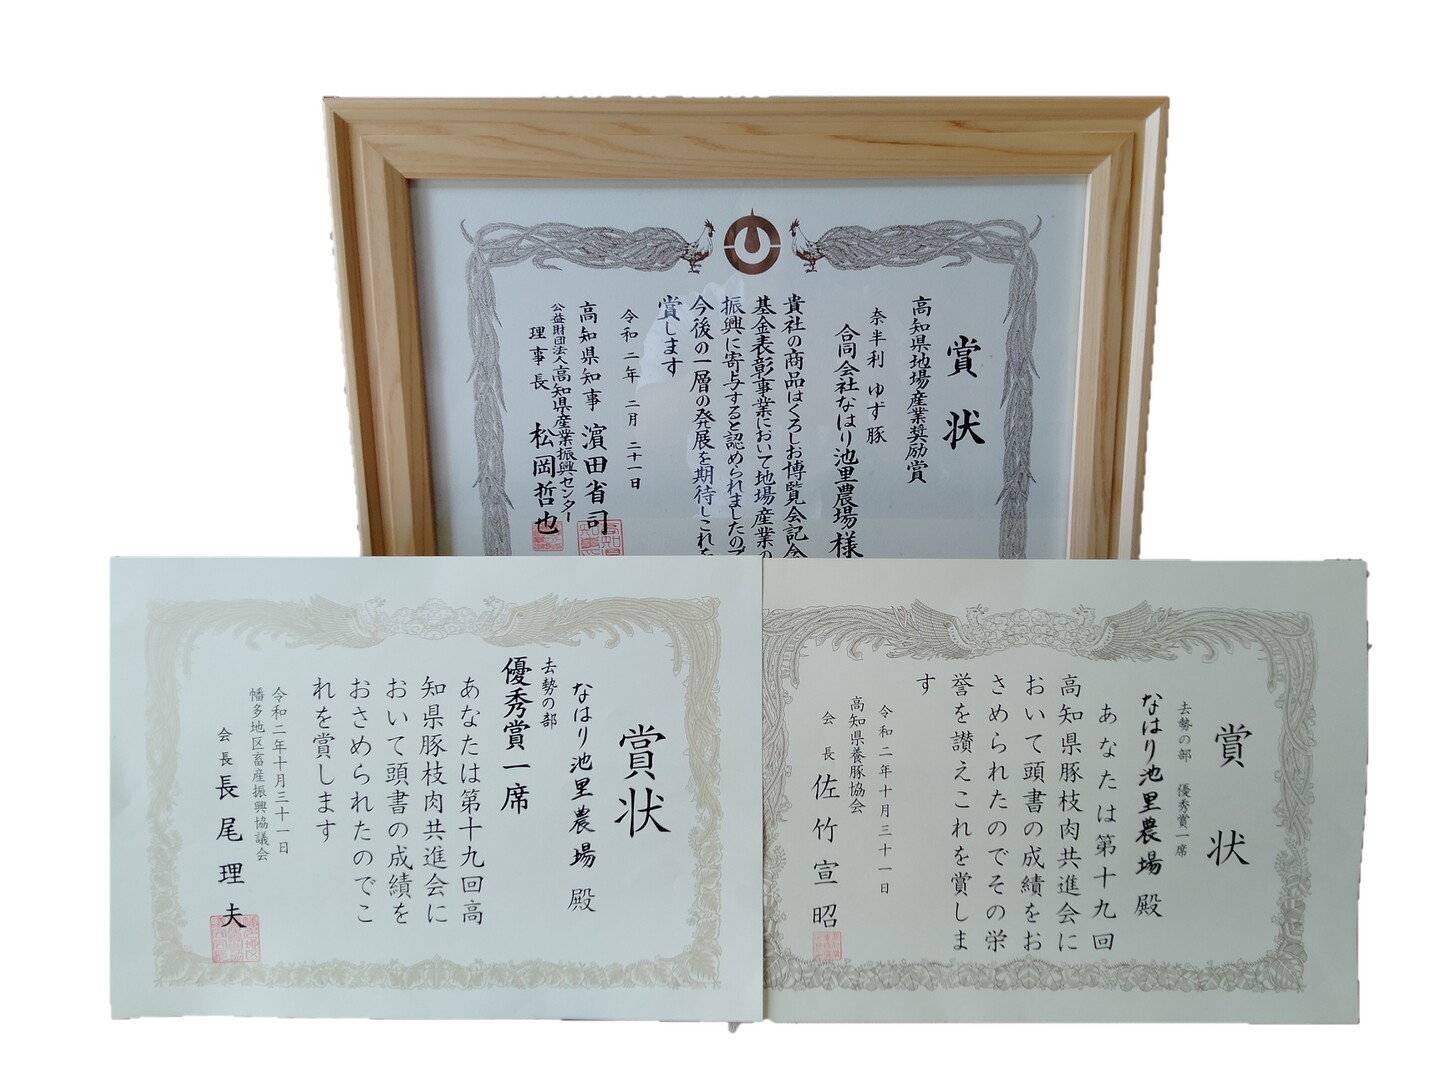 賞状
高知県地場産業奨励賞
奈半利ゆず豚
合同会社なはり池里農場様
貴社の商品はくろしお博覧会記念
基金表彰事業において地場産業の
振興に寄与すると認められましたので
今後の一層の発展を期待しこれを
賞します
令和二年二月二十一日
高知県知事 濵田省司
公益財団法人高知県産業振興センター
理事長 松岡哲也
賞状
去勢の部 優秀賞一席
なはり池里農場 殿
あなたは第十九回
高知県豚枝肉共進会に
おいて頭書の成績をお
さめられたのでその栄
誉を讃えこれを賞しま
す
令和二年十月三十一日
高知県養豚協会
会長 佐竹宣昭
賞状
なはり池里農場 殿
去勢の部
優秀賞一席
あなたは第十九回高
知県豚枝肉共進会に
おいて頭書の成績を
おさめられたのでこ
れを賞します
令和二年十月三十一日
幡多地区畜産振興協議会
会長 長尾理夫